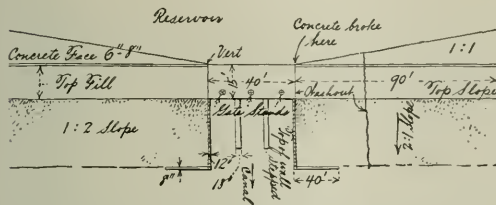 Reservoir
Concrete broke
here
Concrete Face 6"-8"
Vert
1:1
Top Fill
15'
40'
Washout
90'
Top Slope
Gate Stands
1:2 Slope
2:1 Slope
Top of wall
stepped
12'
13'
Canal
8"
40'